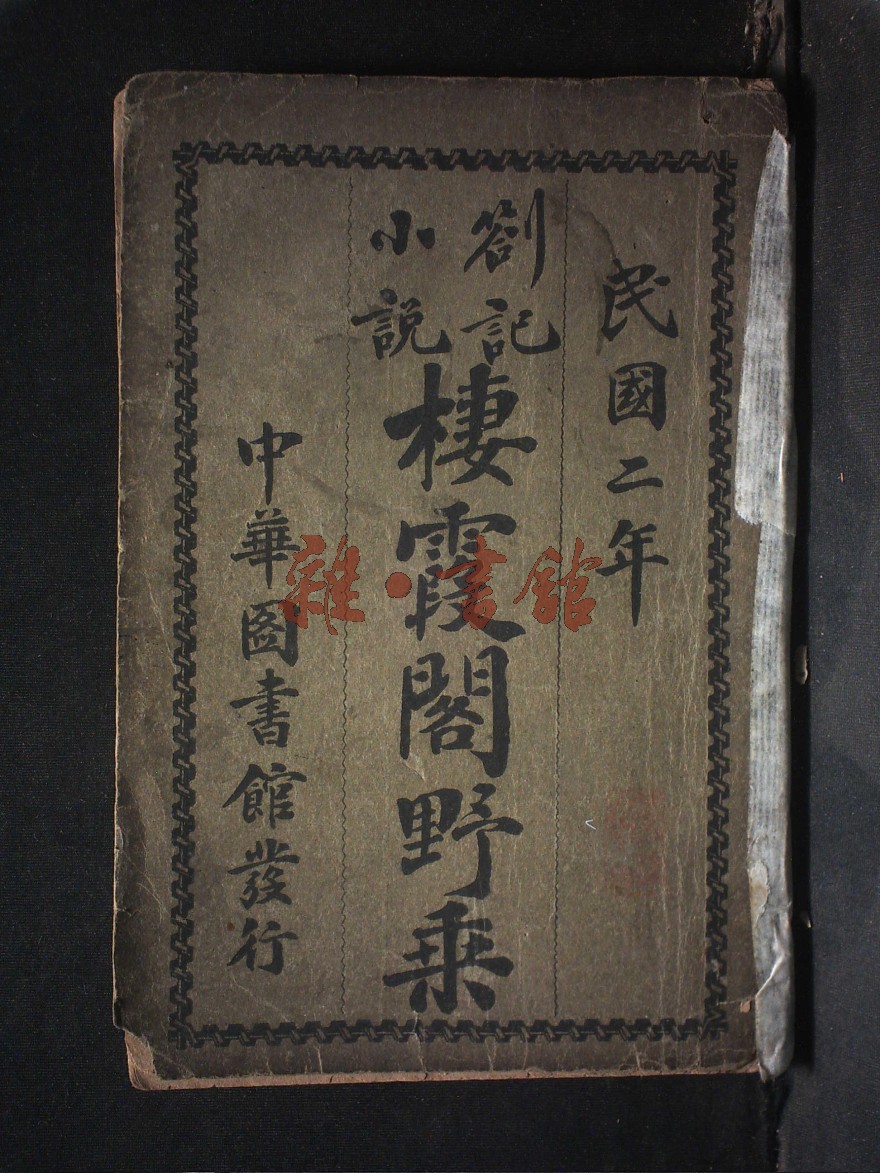 民國二年
劄記
小説
棲霞閣野乗
中華圖書館發行
雜·書館